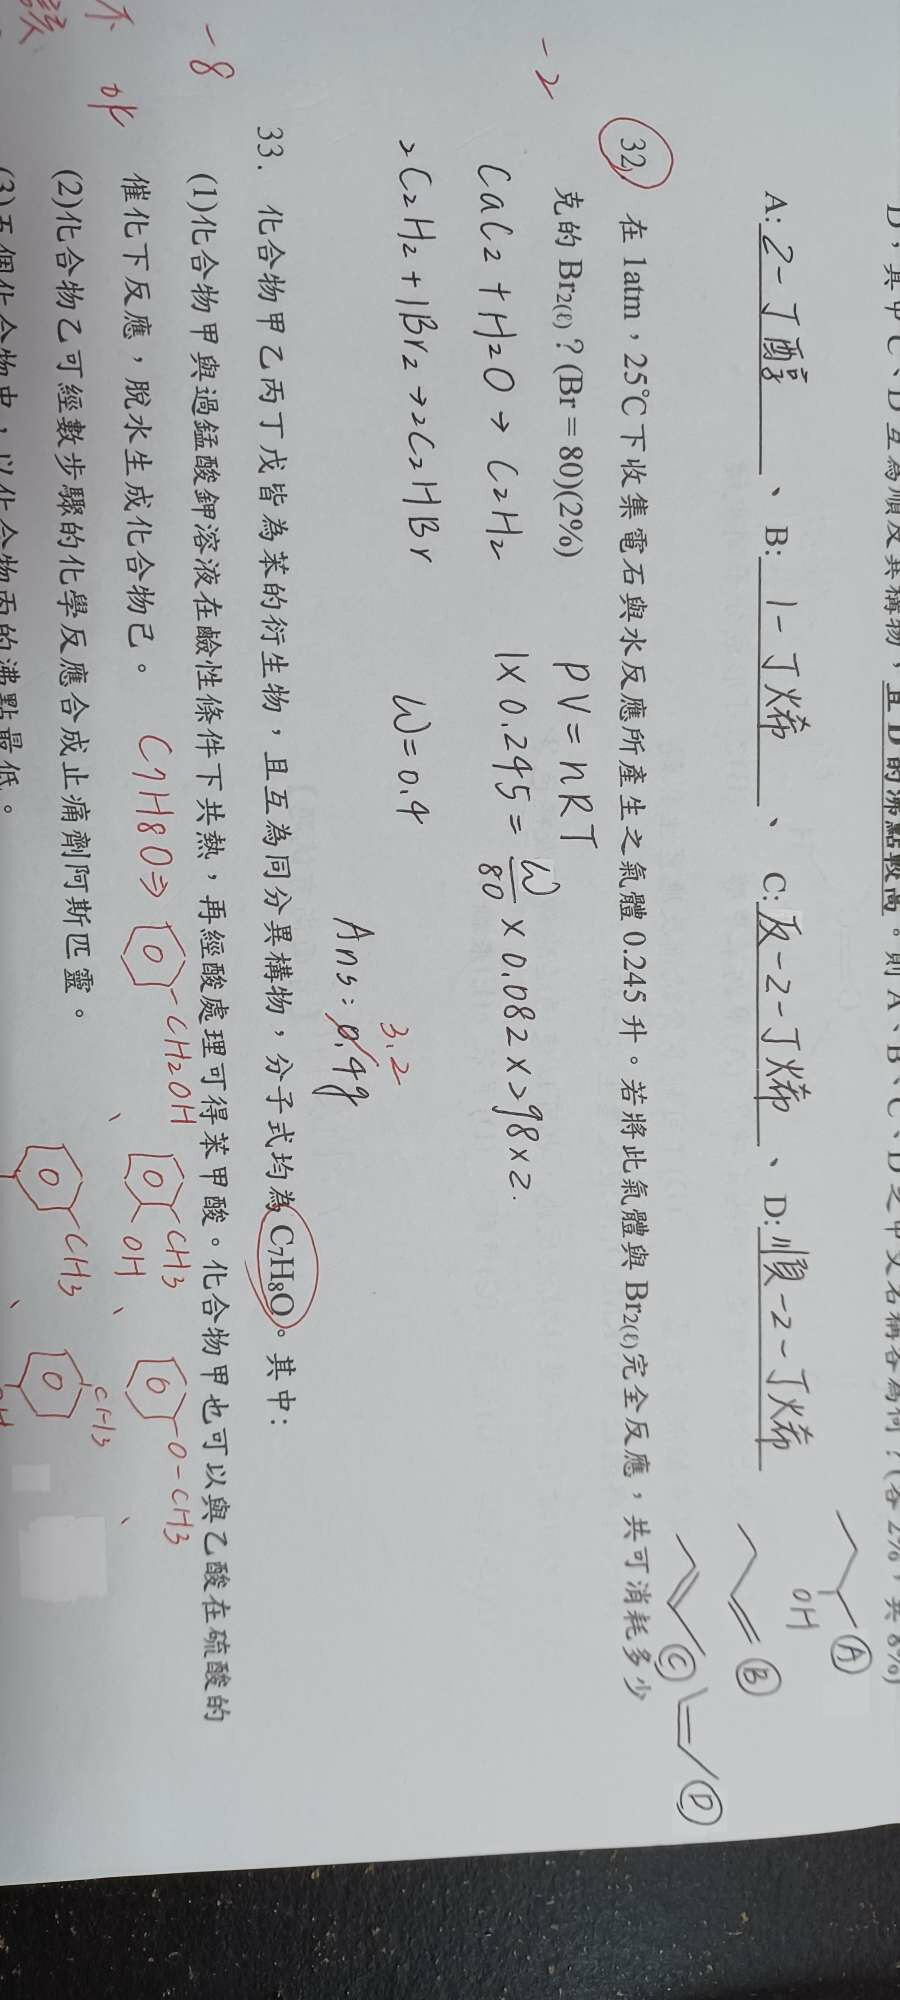 D,其中C、D互為順反異構物,且D的沸點較高。則A、B、C、D之中文名稱各為何?(各2%,共8%)
A: 2-丁醇、B: 1-丁烯、C: 反-2-丁烯、D: 順-2-丁烯
OH
A
B
C
D
-2
32. 在 1atm,25℃下收集電石與水反應所產生之氣體 0.245 升。若將此氣體與 Br₂(ℓ)完全反應,共可消耗多少
克的 Br₂(ℓ)?(Br=80)(2%)
PV=nRT
CaC₂+H₂O→C₂H₂
1×0.245=W/80×0.082×298×2.
2C₂H₂+1Br₂→2C₂HBr
W=0.4
3.2
Ans: 0.4g
-8
33. 化合物甲乙丙丁戊皆為苯的衍生物,且互為同分異構物,分子式均為 C₇H₈O。其中:
(1)化合物甲與過錳酸鉀溶液在鹼性條件下共熱,再經酸處理可得苯甲酸。化合物甲也可以與乙酸在硫酸的
催化下反應,脫水生成化合物己。
C7H8O⇒
CH2OH、
CH3
OH、
O-CH3、
(2)化合物乙可經數步驟的化學反應合成止痛劑阿斯匹靈。
CH3、
CH3
(3)五個化合物中,以化合物丙的沸點最低。